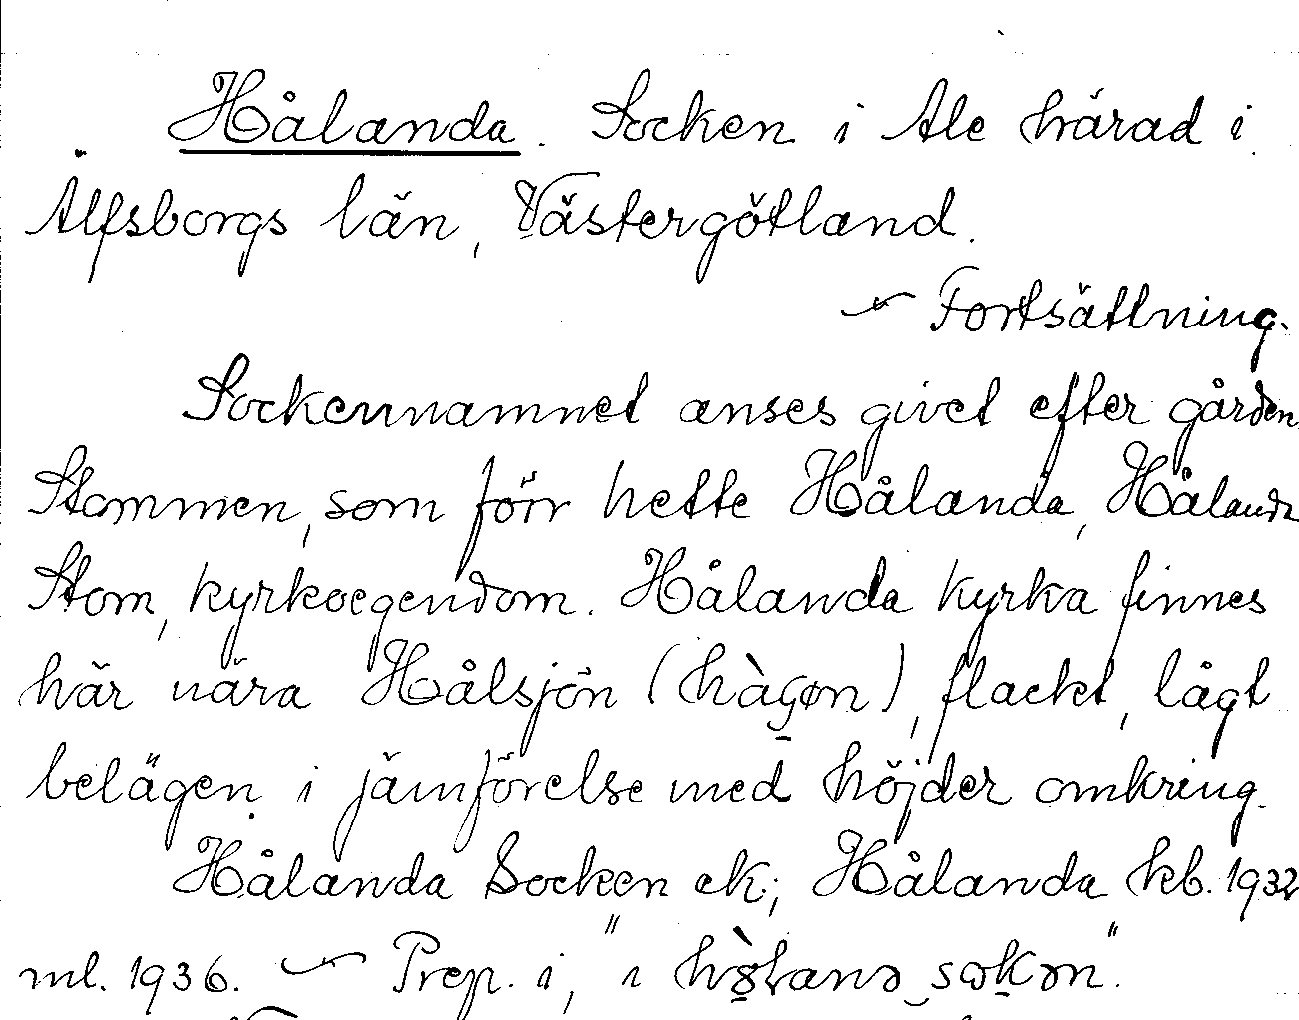 Hålanda. Socken i Ale härad i
Älfsborgs län, Västergötland.
~ Fortsättning.
Sockennamnet anses givet efter gården
Stommen, som förr hette Hålanda, Hålanda
Stom, kyrkoegendom. Hålanda kyrka finnes
här nära Hålsjön (), flackt, lågt
belägen i jämförelse med höjder omkring.
Hålanda Socken ek; Hålanda kb. 1932
ml. 1936. ~ Prep. i, "i